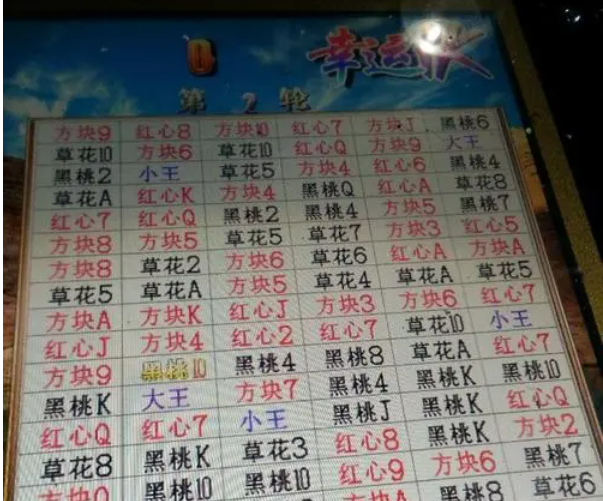 幸运
第 2 轮
方块9 红心8 方块10 红心7 方块J 黑桃6
草花10 方块6 草花10 红心Q 方块9 大王
黑桃2 小王 草花5 方块4 红心6 黑桃4
草花A 红心K 方块4 黑桃Q 红心A 草花8
红心7 红心Q 黑桃2 黑桃4 方块5 黑桃7
方块8 方块5 草花5 草花7 方块3 红心5
方块8 草花2 方块6 草花6 红心A 方块A
草花5 草花A 方块5 草花4 草花A 草花5
方块A 方块K 红心J 方块3 方块6 红心7
红心J 方块4 红心2 红心7 草花10 小王
方块9 黑桃10 黑桃4 黑桃8 草花A 红心7
黑桃K 大王 方块7 黑桃4 黑桃K 黑桃10
红心Q 红心7 小王 黑桃J 黑桃K 红心Q
草花8 黑桃K 草花3 红心8 黑桃K 方块2
方块 黑桃10 黑桃10 红心9 方块6 黑桃7
方块A 黑桃8 草花6